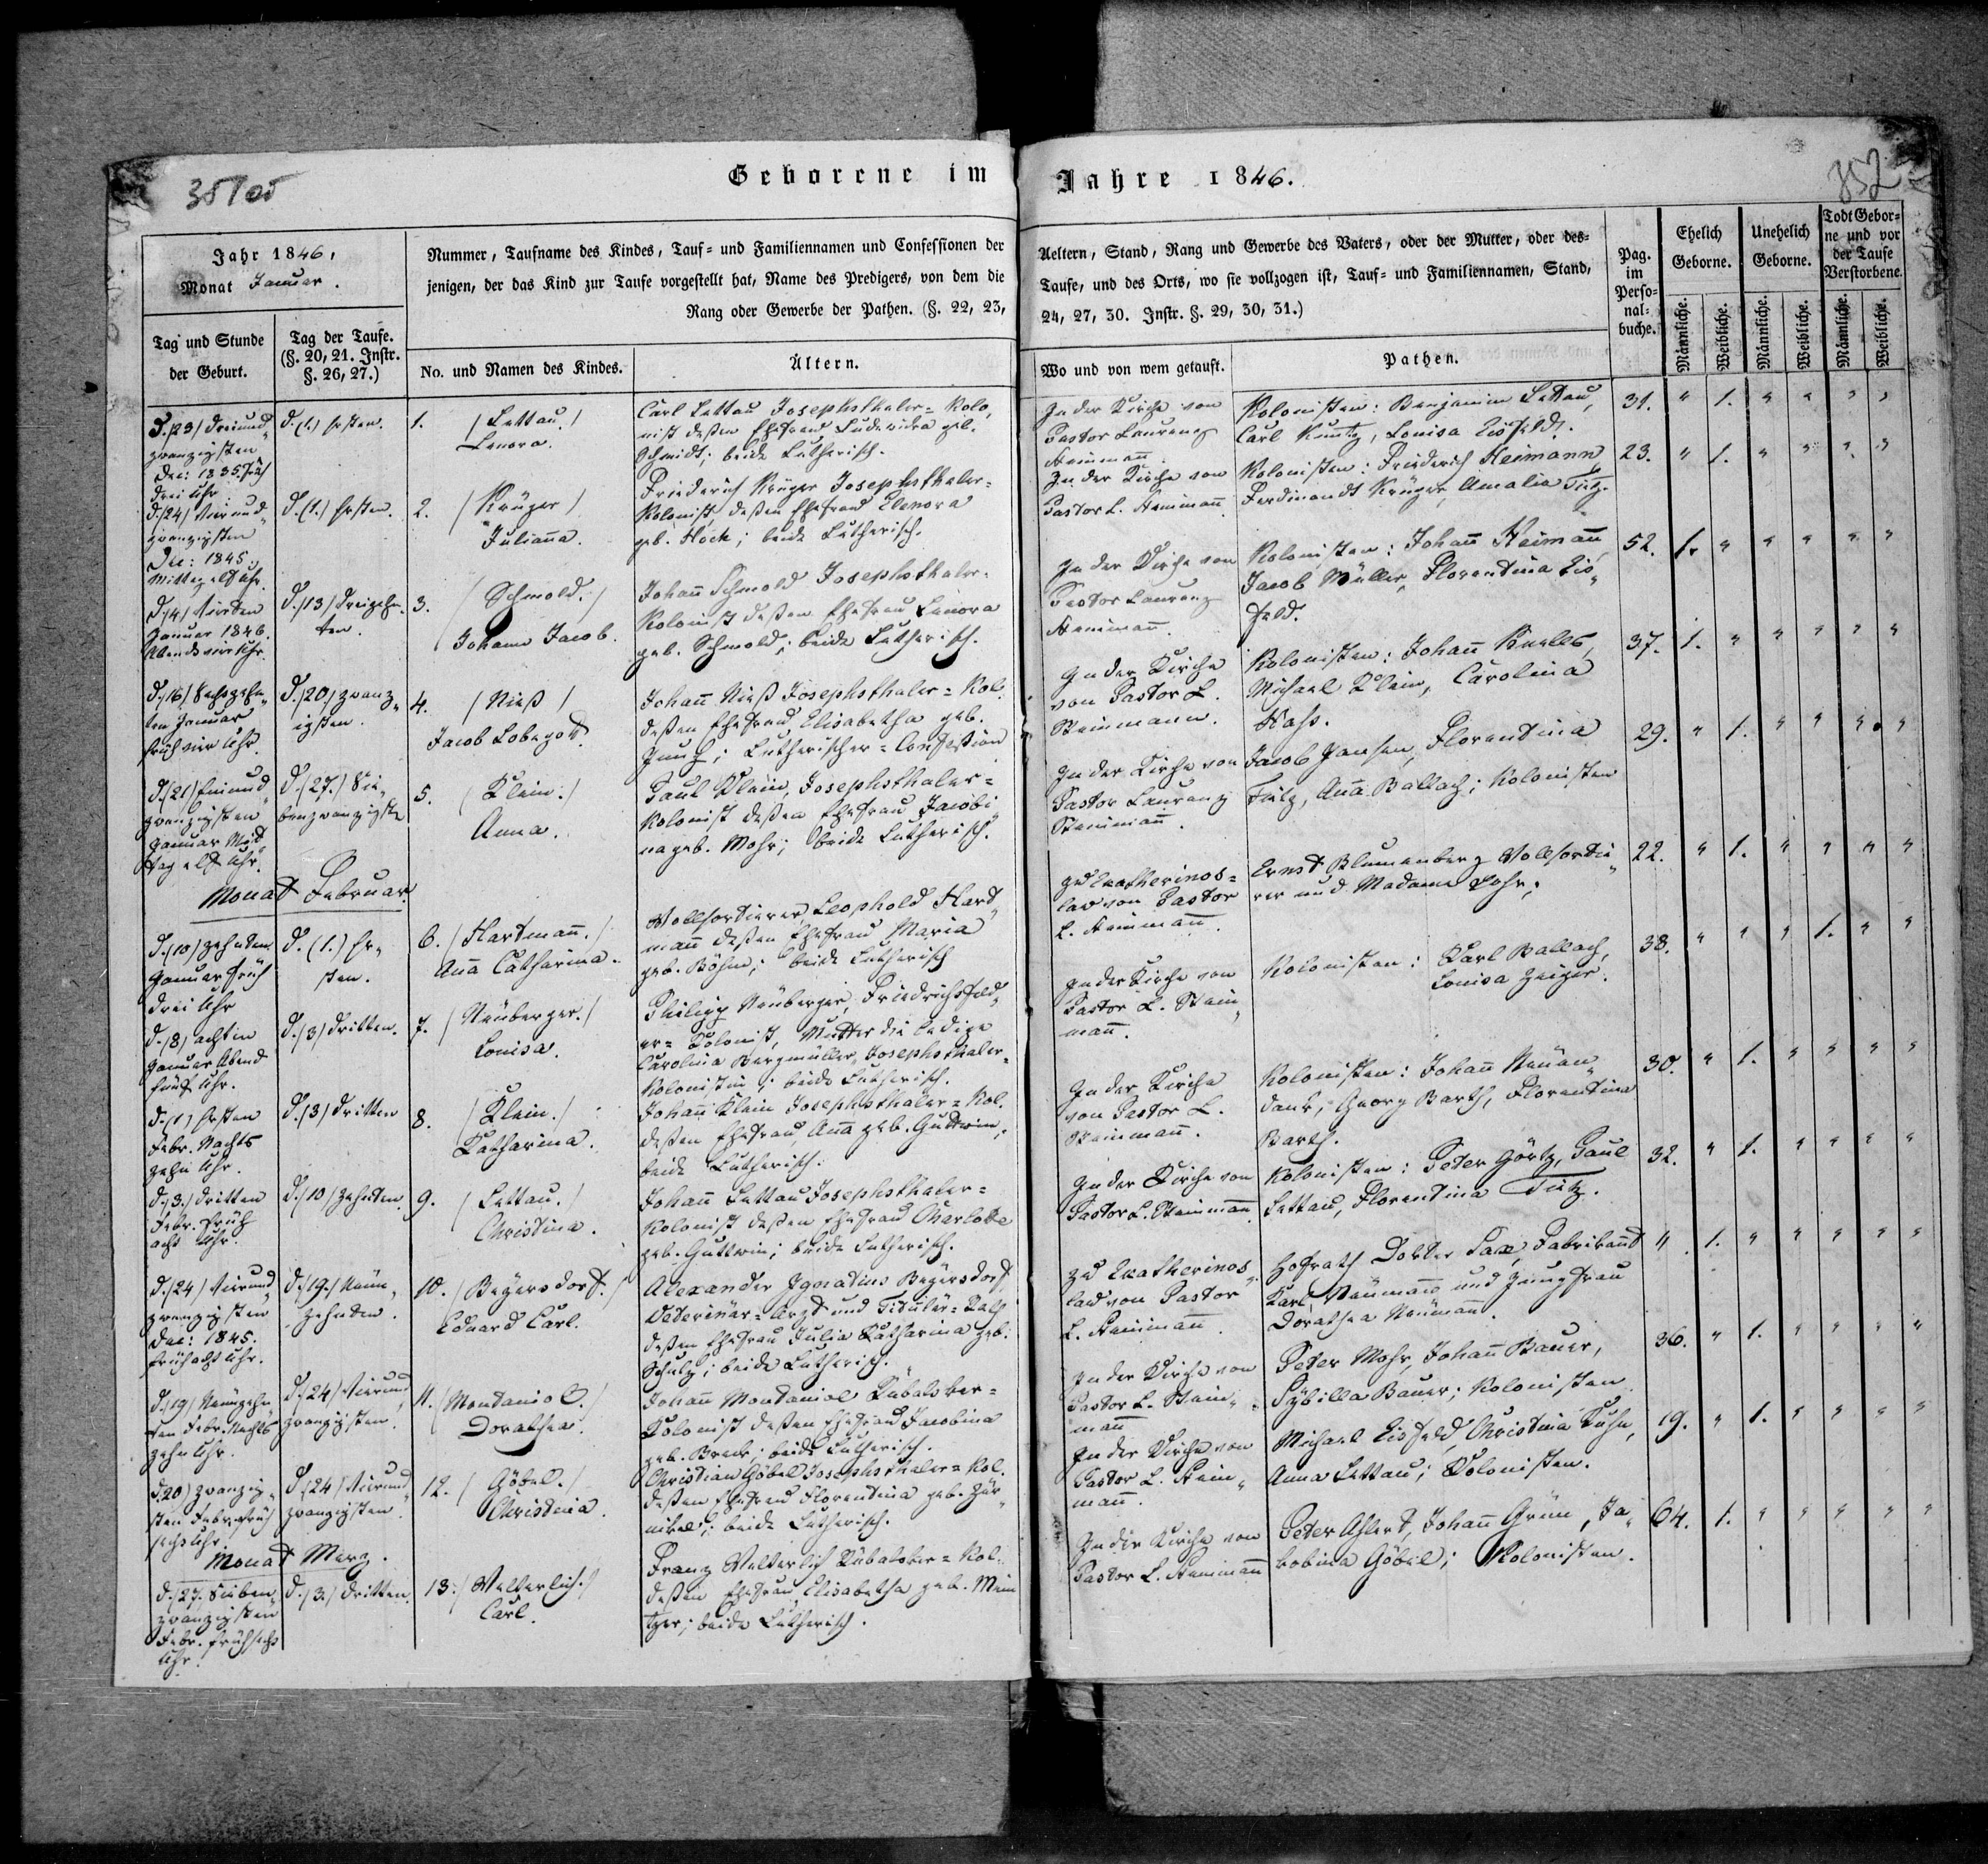 35705
352
Geborene im Jahre 1846.
Jahr 1846,
Monat Januar.
Nummer, Taufname des Kindes, Tauf- und Familiennamen und Confessionen der
Aeltern, Stand, Rang und Gewerbe des Vaters, oder der Mutter, oder des-
jenigen, der das Kind zur Taufe vorgestellt hat, Name des Predigers, von dem die
Taufe, und des Orts, wo sie vollzogen ist, Tauf- und Familiennamen, Stand,
Rang oder Gewerbe der Pathen. (§. 22, 23,
24, 27, 30. Instr. §. 29, 30, 31.)
Pag.
im
Perso-
nal-
buche.
Ehelich
Geborne.
Unehelich
Geborne.
Todt Gebor-
ne und vor
der Taufe
Verstorbene.
Männliche.
Weibliche.
Männliche.
Weibliche.
Männliche.
Weibliche.
Tag und Stunde
der Geburt.
Tag der Taufe.
(§. 20, 21. Instr.
§. 26, 27.)
No. und Namen des Kindes.
Ältern.
Wo und von wem getauft.
Pathen.
D. (23) dreiund„
zwanzigsten
Dec: 1835 früh
drei Uhr.
d. (1.) ersten.
1. / Lettau. /
Lenora.
Carl Lettau Josephsthaler= Kolo„
nist deßen Ehefrau Ludewicka geb.
Schmidt; beide Lutherisch.
In der Kirche von
Pastor Laurenz
Steinmann.
Kolonisten: Benjamin Lettau,
Carl Kuntz, Louisa Eisfeldt.
31. " 1. " " " "
d. (24) Vierund„
zwanzigsten
Dec: 1845.
Mittag elf Uhr.
d. (1.) ersten.
2. / Krüger /
Julianna.
Friederich Krüger Josephsthaler=
Kolonist, deßen Ehefrau Elenora
geb. Hock; beide Lutherisch.
In der Kirche von
Pastor L. Steinmann.
Kolonisten: Friederich Heimann
Ferdinandt Krüger, Amalia Tietz.
23. " 1. " " " "
d. (4) Vierten
Januar 1846.
Abends vier Uhr.
d. (13) dreizehn„
ten.
3. / Schmold. /
Johann Jacob.
Johann Schmold Josephsthaler=
Kolonist deßen Ehefrau Lenora
geb. Schmold; beide Lutherisch.
In der Kirche von
Pastor Laurenz
Steinmann.
Kolonisten: Johann Heimann,
Jacob Müller, Florentina Eis„
feld.
52. 1. " " " " "
d. (16) Sechszehn„
ten Januar
früh vier Uhr.
d. (20) zwanz„
igsten.
4. / Nieß /
Jacob Lobegott.
Johann Nieß Josephsthaler= Kol.
deßen Ehefrau Elisabetha geb.
Lutherischer= Confeßion
In der Kirche
von Pastor L.
Steinmann.
Kolonisten: Johann
Michael Klein, Carolina
Haß.
37. 1. " " " " "
d. (21) Einund„
zwanzigsten
Januar Mit„
tag elf Uhr.
d. (27.) Sie„
benzwanzigsten
5. / Klein. /
Anna.
Paul Klein, Josephsthaler=
Kolonist deßen Ehefrau Jacobi„
na geb. Mohr; beide Lutherisch.
In der Kirche von
Pastor Laurenz
Steinmann.
Jacob Jansen, Florentina
Tietz, Anna Ballach; Kolonisten
29. " 1. " " " "
Monat Februar.
d. (10) zehnten
Januar früh
drei Uhr
d. (1.) er„
sten.
6. / Hartmann. /
Anna Catharina.
Wollsortierer Leophold Hart„
mann deßen Ehefrau Maria
geb. Böhm; beide Lutherisch
zu Ekatherinos=
law von Pastor
L. Steinmann.
Ernst Blumenberg Wollsortie„
rer und Madame
22. " 1. " " " "
d. (8) achten
Januar Abend
fünf Uhr.
d. (3) dritten.
7. / Neuberger. /
Louisa.
Philipp Neuberger, Friedrichsfeld„
er= Kolonist, Mutter die ledige
Carolina Bergmüller, Josephsthaler=
Kolonistin; beide Lutherisch.
In der Kirche von
Pastor L. Stein„
mann.
Kolonisten: Karl Ballach,
Louisa Geiger.
38. " " " 1. " "
d. (1) ersten
Febr. Nachts
zehn Uhr.
d. (3) dritten
8. / Klein. /
Katharina.
Johann Klein Josephsthaler= Kol.
deßen Ehefrau Anna geb. Guttwin,
beide Lutherisch.
In der Kirche
von Pastor L.
Steinmann.
Kolonisten: Johann Neuen„
dank, Georg Barth, Florentina
Barth.
30. " 1. " " " "
d. (3.) dritten
Febr. früh
acht Uhr.
d. (10) zehnten.
9. / Lettau. /
Christina.
Johann Lettau Josephsthaler=
Kolonist deßen Ehefrau Charlotte
geb. Guttwin; beide Lutherisch.
In der Kirche von
Pastor L. Steinmann
Kolonisten: Peter Görtz, Paul
Lettau, Florentina Tietz.
32. " 1. " " " "
d. (24) Vierund„
zwanzigsten
Dec: 1845.
früh acht Uhr.
d. (19.) Neun„
zehnten.
10. / Beyersdorf. /
Eduard Carl.
Alexander Ignatius Beyersdorf,
Veterinär= Arzt und Titulär= Rath
deßen Ehefrau Julia Katharina geb.
Schulz; beide Lutherisch.
zu Ekatherinos„
law von Pastor
L. Steinmann.
Hofrath Dokter Sax, Fabrikant
Karl Neumann und Jungfrau
Dorathea Neumann.
" 1. " " " " "
d. (19) Neunzehn„
ten Febr. Nachts
zehn Uhr.
d. (24) Vierund„
zwanzigsten.
11. / Montaniol. /
Dorathea.
Johann Montaniol Rübalsker=
Kolonist deßen Ehefrau Jacobina
geb. Breck; beide Lutherisch.
In der Kirche von
Pastor L. Stein„
mann
Peter Mohr, Johann Bauer,
Sybilla Bauer; Kolonisten
36. " 1. " " " "
d. (20) zwanzig„
sten Febr. früh
sechs Uhr.
d. (24) Vierund„
zwanzigsten.
12. / Göbel. /
Christina.
Christian Göbel Josephsthaler= Kol.
deßen Ehefrau Florentina geb. Zär„
nikel; beide Lutherisch.
In der Kirche von
Pastor L. Stein„
mann.
Michael Eisfeld, Christina Kuhn,
Anna Lettau; Kolonisten.
19. " 1. " " " "
Monat Merz.
d. (27. Sieben„
zwanzigsten
Febr. früh sechs
Uhr.
d. (3.) dritten.
13. / Welterlich. /
Carl.
Franz Welterlich Rübalsker= Kol.
deßen Ehefrau Elisabetha geb. Mein
tzer; beide Lutherisch.
In der Kirche von
Pastor L. Steinmann
Peter Ahlert, Johann Grün, Ja„
kobina Göbel; Kolonisten.
64. 1. " " " " "